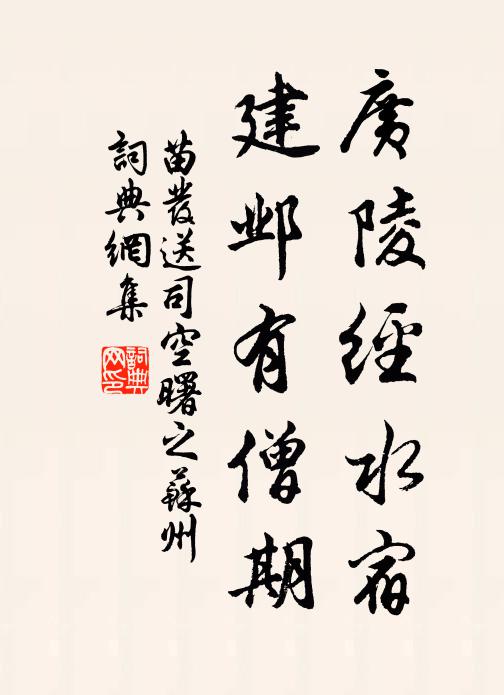 廣陵經水宿
建邺有僧期
苗發送司空曙之蘇州
詞典網集
詞典
网印